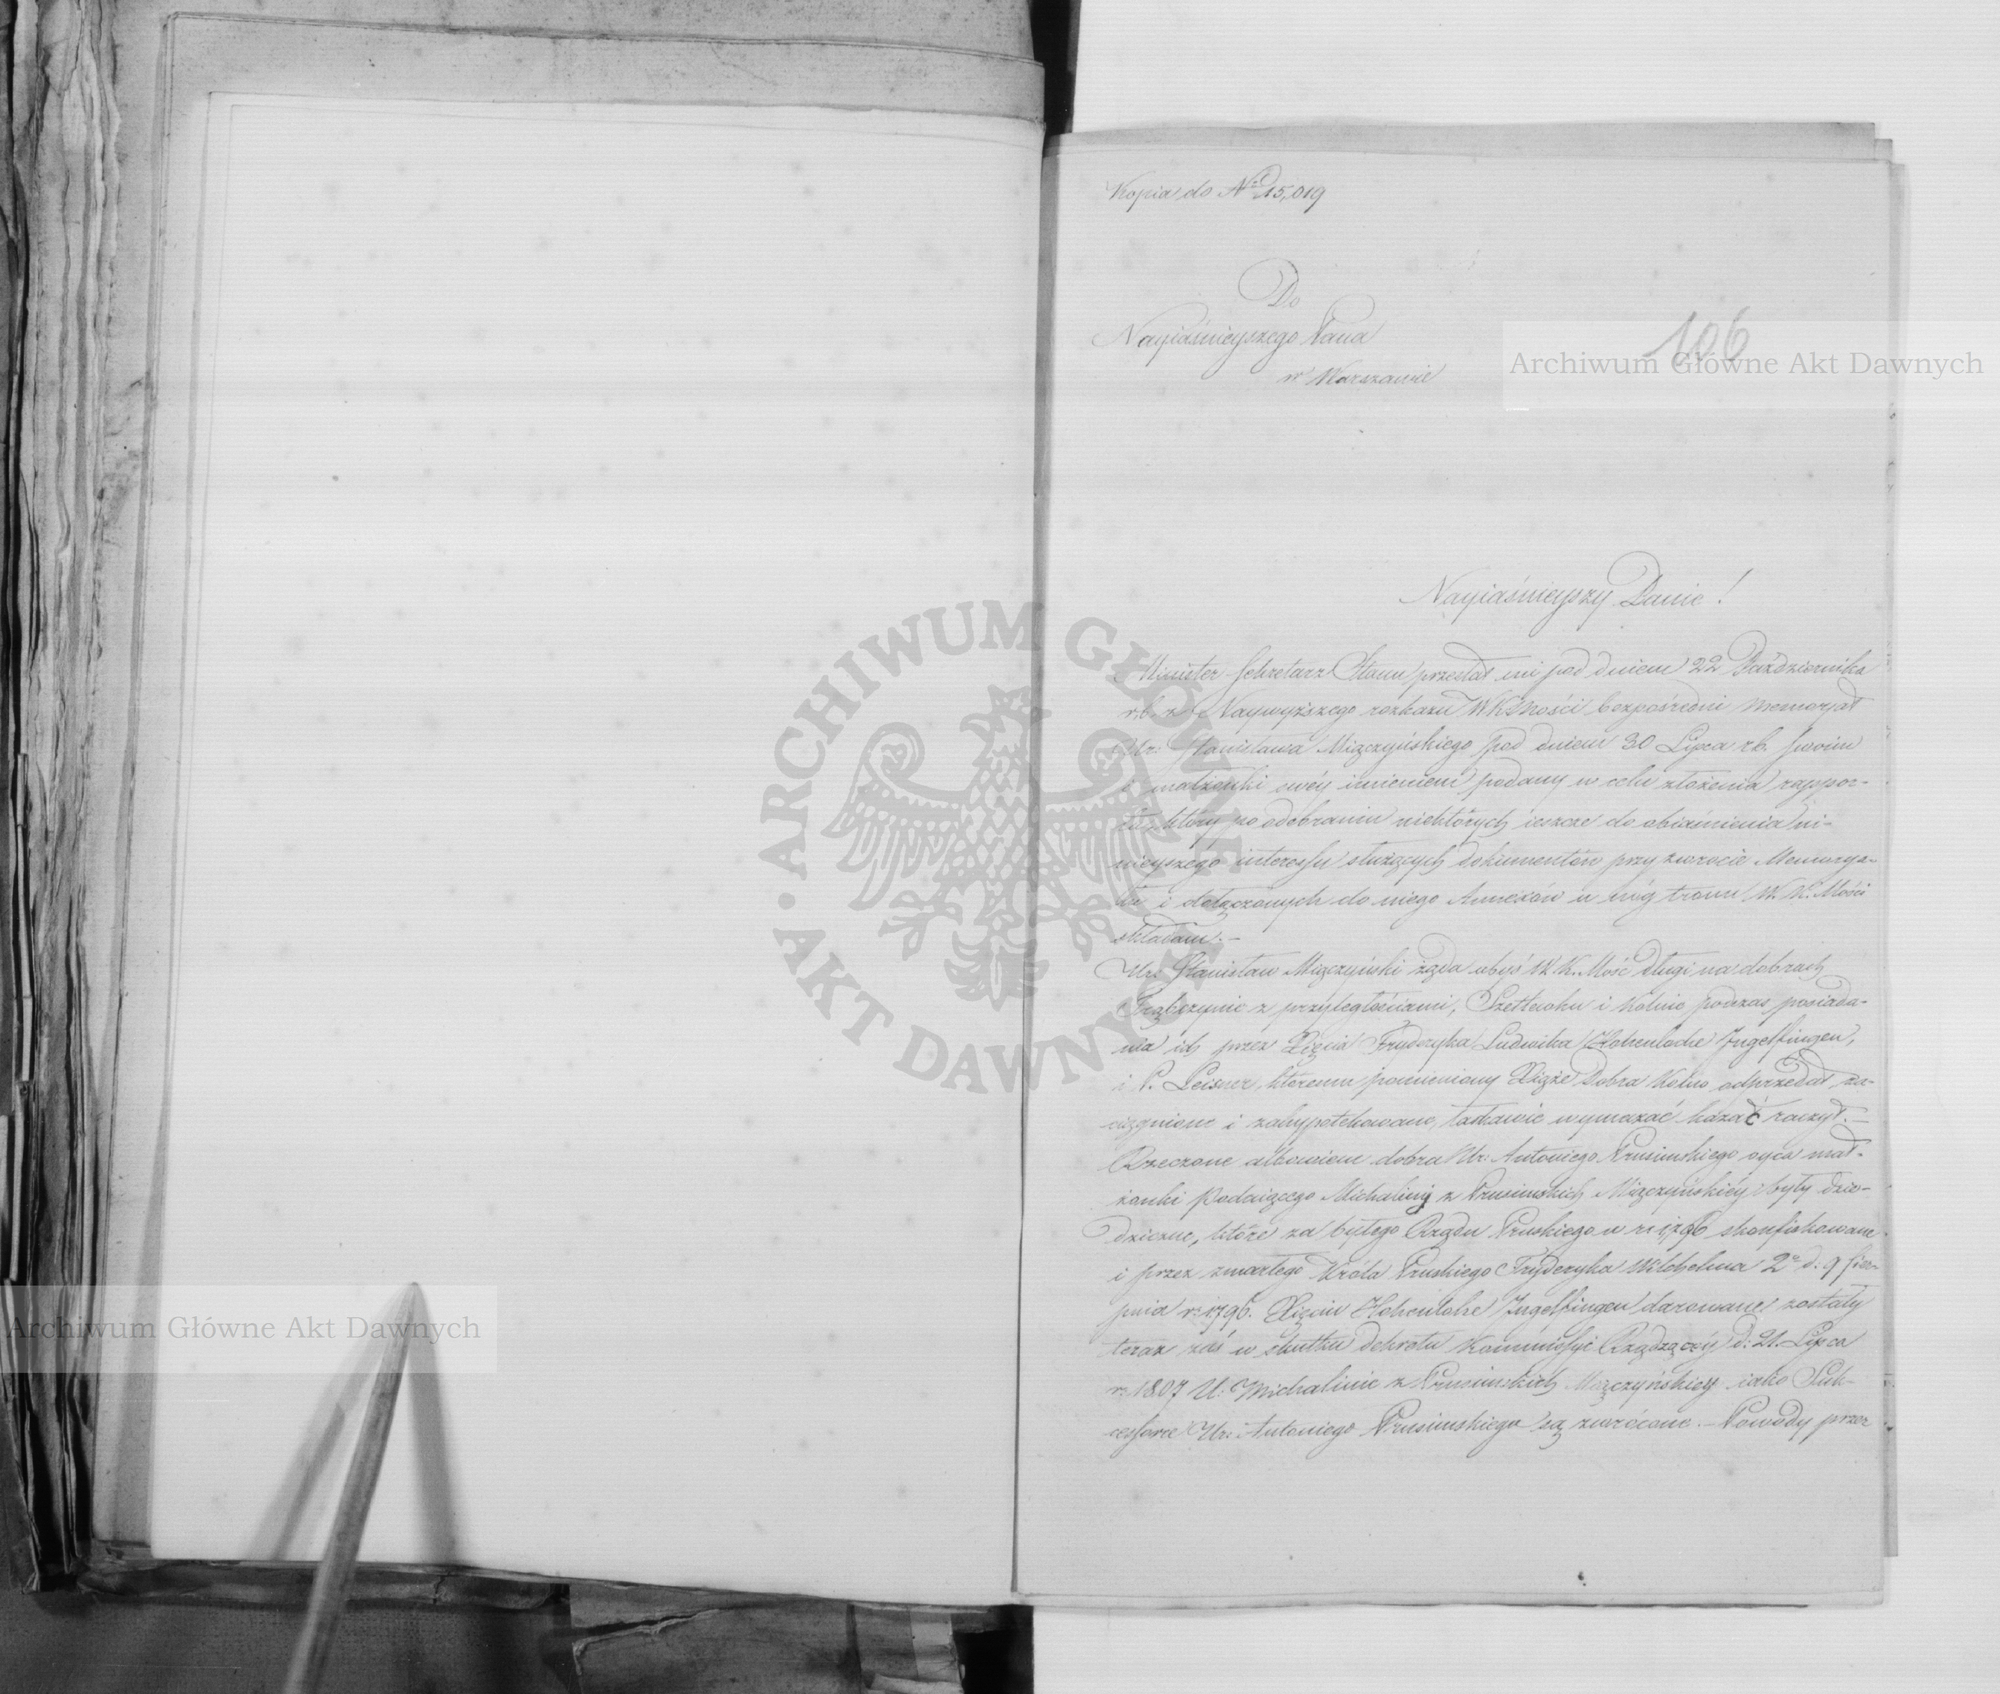 Kopia do Nrd 15,019
106
Do
Nayiaśnieyszego Pana
w Warszawie
Nayiaśnieyszy Panie!
Minister Sekretarz Stanu przesłał mi pod dniem 22 Października
r. b. z Naywyższego rozkazu WKMości bezpośredni memoryał
Ur: Stanisława Miączyńskiego pod dniem 30 Lipca r. b. swoim
i małżonki swéy imieniem podany w celu złożenia rappor-
tu, który po odebraniu niektórych ieszcze do obiaśnienia ni-
nieyszego interessu służących dokumentów przy zwrocie Memorya-
łu i dołączonych do niego Annexów u nóg tronu W. K. Mości
składam. –
Ur. Stanisław Miączyński żąda abyś W K. Mość długi na dobrach
Trąbczynie z przyległościami, Szetlewku i Kolno podczas posiada-
nia ich przez Xięcia Fryderyka Ludwika Hohenlohe Ingelfingen,
i P. Leisner, któremu pomieniony Xiąże Dobra Kolno odprzedał, za-
ciągnione i zahypotekowane, łaskawie wymazać kazać raczył. –
Rzeczone albowiem dobra Ur: Antoniego Prusimskiego oyca mał-
żonki Podaiącego Michaliny z Prusimskich Miączyńskiéy były dzie-
dziczne, które za byłego Rządu Pruskiego w r. 1796 skonfiskowane
i przez zmarłego Króla Pruskiego Fryderyka Wilhelma 2º d: 9 Sier-
pnia r. 1796. Xięciu Hohenlohe Ingelfingen darowane zostały
teraz zaś w skutku dekretu Kommissyi Rządzącéy d: 21. Lipca
r. 1807 U: Michalinie z Prusimskich Miączyńskiey iako Suk-
cessorce Ur: Antoniego Prusimskiego są zwrócone. – Powody przez
Archiwum Główne Akt Dawnych
Archiwum Główne Akt Dawnych
ARCHIWUM GŁÓWNE • AKT DAWNYCH